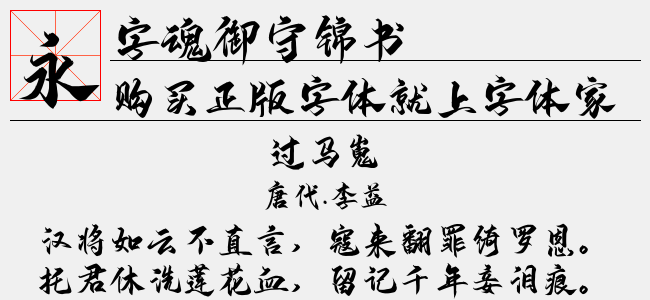 永
字魂御守锦书
购买正版字体就上字体家
过马嵬
唐代.李益
汉将如云不直言，寇来翻罪绮罗恩。
托君休洗莲花血，留记千年妾泪痕。